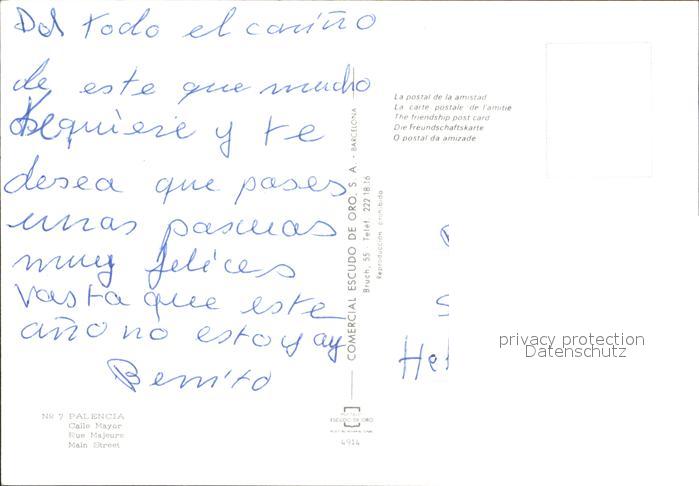 Dol todo el cariño
de este que mucho
te quiere y te
desea que pases
unas pascuas
muy felices
vasta que este
año no estoy ay
Benito
Nº 7 PALENCIA
Calle Mayor
Rue Majeure
Main Street
COMERCIAL ESCUDO DE ORO, S. A. - BARCELONA
Bruch, 55 - Telef. 222 18 16
Reproducción prohibida
ESCUDO DE ORO
4914
La postal de la amistad
La carte postale de l'amitié
The friendship post card
Die Freundschaftskarte
O postal da amizade
S
He
privacy protection
Datenschutz